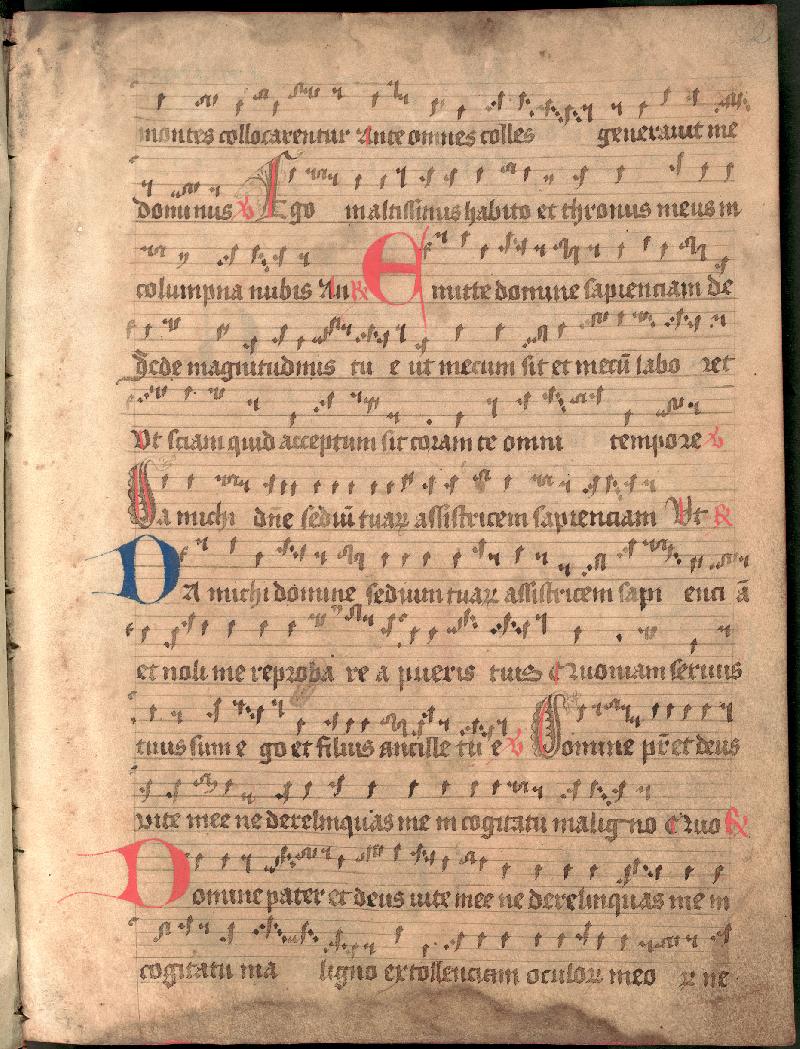 montes collocarentur Ante omnes colles generauit me
dominus ℣ Ego in altissimis habito et thronus meus in
columpna nubis An ℟ Emitte domine sapienciam de
sede magnitudinis tu e ut mecum sit et mecū labo ret
Ut sciam quid acceptum sit coram te omni tempore ℣
Da michi dn̄e sediū tuaꝝ assistricem sapienciam Ut ℟
Da michi domine sedium tuaꝝ assistricem sapi enci ā
et noli me reproba re a pueris tuis Quoniam seruus
tuus sum e go et filius ancille tu e ℣ Domine pr̄ et deus
uite mee ne derelinquas me in cogitatu maligno Quo ℟
Domine pater et deus uite mee ne derelinquas me in
cogitatu ma ligno extollenciam oculoꝝ meo ꝝ ne